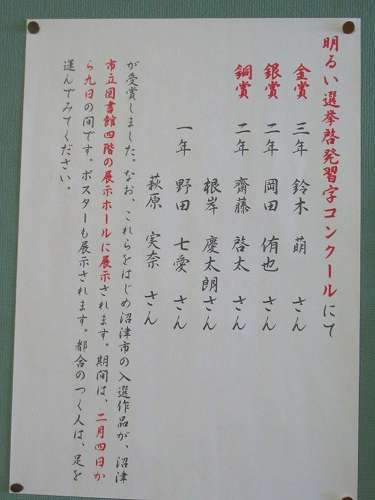 明るい選挙啓発習字コンクールにて
金賞 三年 鈴木 萌 さん
銀賞 二年 岡田 侑也 さん
銅賞 二年 齋藤 啓太 さん
根岸 慶太朗さん
一年 野田 七愛 さん
萩原 実奈 さん
が受賞しました。なお、これらをはじめ沼津市の入選作品が、沼津
市立図書館四階の展示ホールに展示されます。期間は、二月四日か
ら九日の間です。ポスターも展示されます。都合のつく人は、足を
運んでみてください。